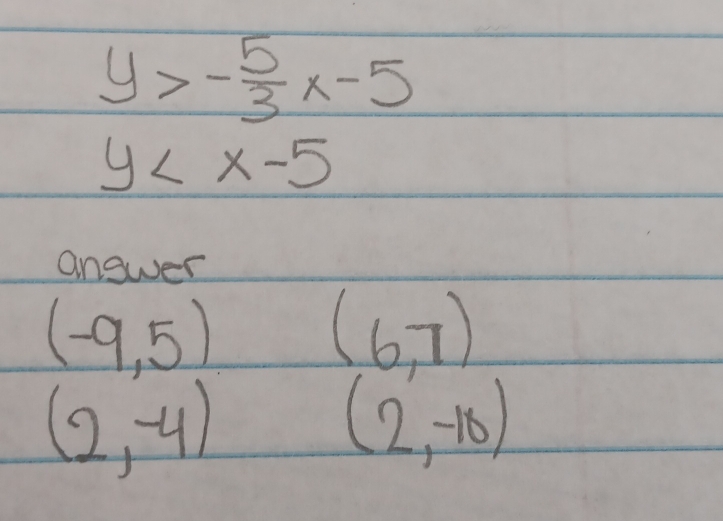 y > -5/3 x - 5
y < x - 5
answer
(-9,5) (6,7)
(2,-4) (2,-10)